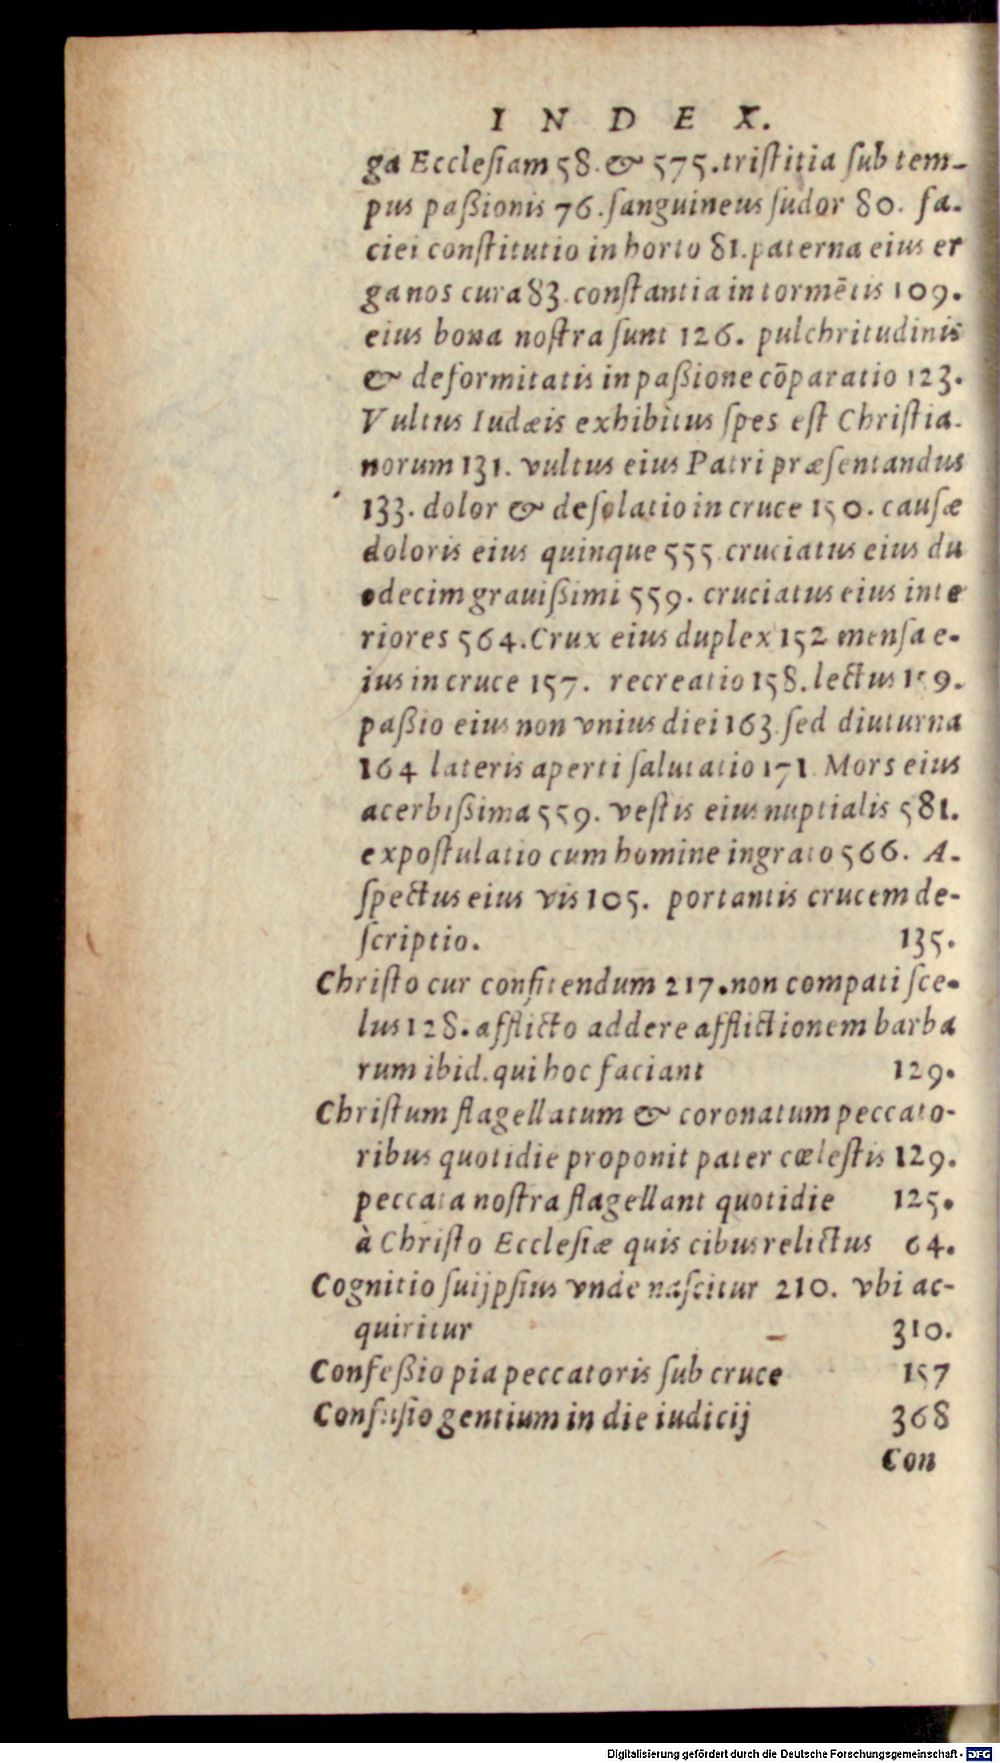 INDEX.
ga Eccleſiam 58. & 575. triſtitia ſub tem-
pus paßionis 76. ſanguineus ſudor 80. fa-
ciei conſtitutio in horto 81. paterna eius er
ga nos cura 83. conſtantia in tormētis 109.
eius bona noſtra ſunt 126. pulchritudinis
& deformitatis in paßione cōparatio 123.
Vultus Iudæis exhibitus ſpes eſt Chriſtia-
norum 131. vultus eius Patri præſentandus
133. dolor & deſolatio in cruce 150. cauſæ
doloris eius quinque 555. cruciatus eius du
odecim grauißimi 559. cruciatus eius inte
riores 564. Crux eius duplex 152 menſa e-
ius in cruce 157. recreatio 158. lectus 159.
paßio eius non vnius diei 163 ſed diuturna
164 lateris aperti ſalutatio 171 Mors eius
acerbißima 559. veſtis eius nuptialis 581.
expoſtulatio cum homine ingrato 566. A-
ſpectus eius vis 105. portantis crucem de-
ſcriptio. 135.
Chriſto cur confitendum 217. non compati ſce-
lus 128. afflicto addere afflictionem barba
rum ibid. qui hoc faciant 129.
Chriſtum flagellatum & coronatum peccato-
ribus quotidie proponit pater cœleſtis 129.
peccata noſtra flagellant quotidie 125.
à Chriſto Eccleſiæ quis cibus relictus 64.
Cognitio ſuijpſius vnde naſcitur 210. vbi ac-
quiritur 310.
Confeßio pia peccatoris ſub cruce 157
Confuſio gentium in die iudicij 368
Con
Digitalisierung gefördert durch die Deutsche Forschungsgemeinschaft - DFG